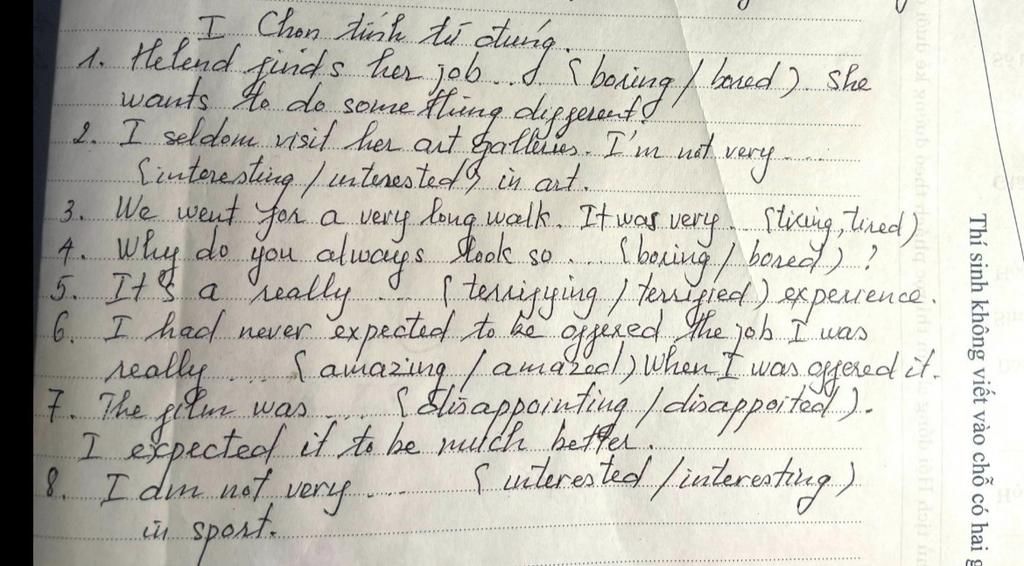 I Chọn tính từ đúng.
1. Helend finds her job ... (boring / bored). She
wants to do something different.
2. I seldom visit her art galleries. I'm not very ....
(interesting / interested) in art.
3. We went for a very long walk. It was very ... (tiring, tired)
4. Why do you always look so ... (boring / bored) ?
5. It's a really .... (terrifying / terrified) experience.
6. I had never expected to be offered the job I was
really .... (amazing / amazed) When I was offered it.
7. The film was .... (disappointing / disappoited).
I expected it to be much better.
8. I am not very .... (interested / interesting)
in sport.
Thí sinh không viết vào chỗ có hai g